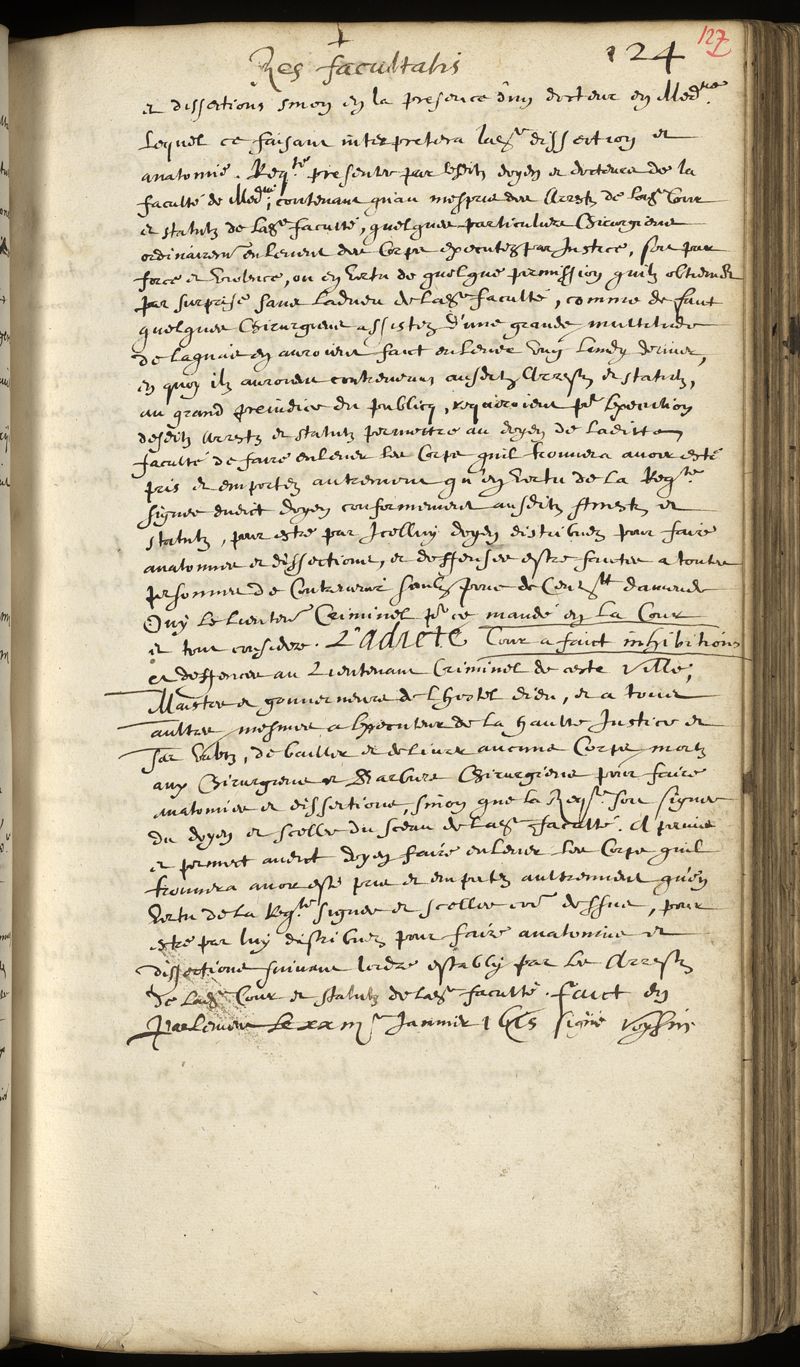 127
Res facultatis 124
et dissections sinon en la presence d'un docteur en Med.ne
Lequel ce faisant interpretera lad.e dissection et
anatomie. Req.te presentee par lesditz doyen et docteurs de la
faculté de Med.ne, contenant qu'au mespris des Arrestz de lad.e Cour
et statutz de lad.e faculté, quelques particuliers Chirurgiens
ordinairem.t enlevent des Corps executez par Justice, soit par
force et violence, ou en vertu de quelque permission qu'ilz obtiennent
par surprise sans l'adveu de lad.e faculté, comme de faict
quelques Chirurgiens assistez d'une grande multitude
de laquais en auroient faict enlever un Lundy dernier,
en quoy ilz auroient contrevenu ausditz Arrestz et statutz,
au grand preiudice du publicq, requeroient p.r l'execution
desditz Arrestz et statutz permettre au doyen de laditte
faculté de faire enlever les Corps quil trouvera avoir esté
pris et emportez autrement qu'en vertu de la Req.te
signee dudict doyen conformement ausditz Arrestz et
statutz, pour estre par Icelluy doyen distribuez pour faire
anatomies et dissections, et deffenses estre faictes a toutes
personnes de Contrevenir soubz peine de Cent d'amende
Ouy le Lieuten.t Criminel p.r ce mandé en La Cour
et tout consideré. L'adicte Cour a faict inhibitions
et deffences au Lieutenant Criminel de ceste Ville,
Maistres et gouverneurs de l'hostel dieu, et a tous
aultres mesmes a l'executeur de la haulte Justice et
ses valetz, de bailler et delivrer aucuns Corps mortz
aux Chirurgiens et Barbiers Chirurgiens pour faire
anatomies et dissections, sinon que la Req.te soit signee
du doyen et scellee du sceau de lad.e faculté. A permis
et permect audict doyen faire enlever les Corps quil
trouvera avoir esté pris et emportez aultrement qu'en
vertu de la Req.te signee et scellee dessus, pour
estre par luy distribuez pour faire anatomies et
dissections suivant l'ordre estably par les Arrestz
de lad.e Cour et statutz de lad.e faculté. faict en
Parlement Le Janvier 1615 signé Voysin